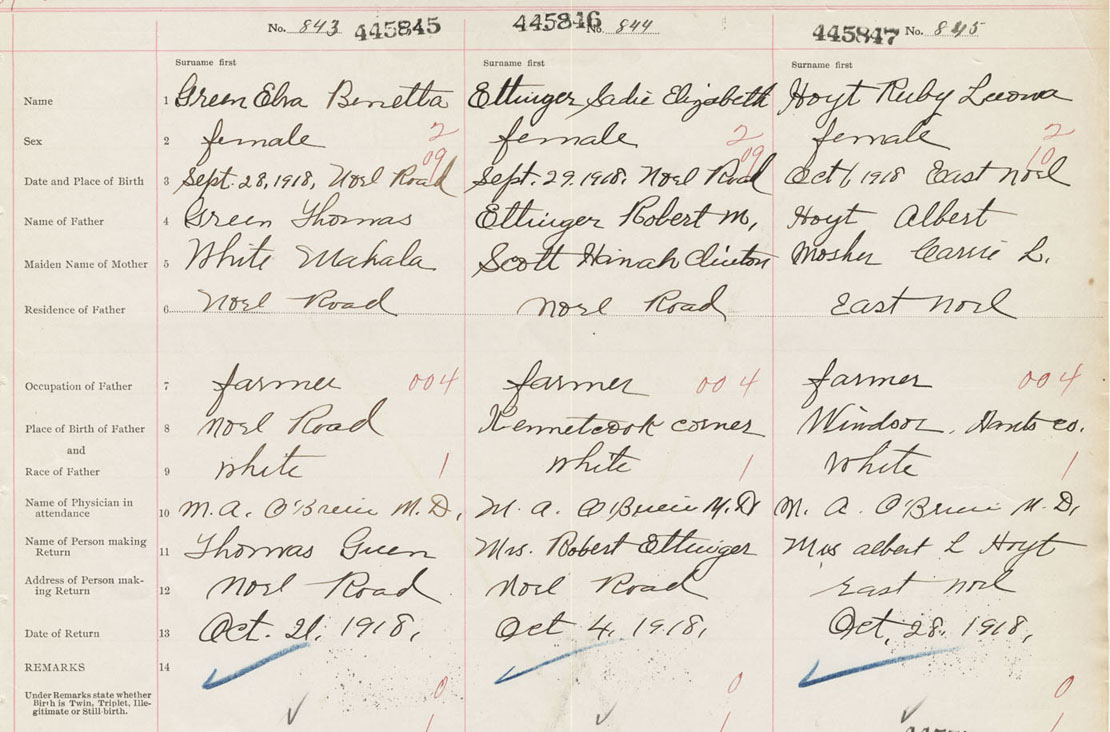 No. 843 445845 445846 No. 844 445847 No. 845
Surname first Surname first Surname first
Name 1 Green Elva Benetta Ettinger Sadie Elizabeth Hoyt Ruby Leeona
Sex 2 female 2 female 2 female 2
09 09 10
Date and Place of Birth 3 Sept. 28, 1918, Noel Road Sept. 29. 1918, Noel Road Oct 1, 1918 East Noel
Name of Father 4 Green Thomas Ettinger Robert M, Hoyt Albert
Maiden Name of Mother 5 White Mahala Scott Hinah Clinton Mosher Carrie L.
Residence of Father 6 Noel Road Noel Road East Noel
Occupation of Father 7 farmer 004 farmer 004 farmer 004
Place of Birth of Father 8 Noel Road Kennetcook corner Windsor, Hants co.
and
Race of Father 9 White 1 White 1 White 1
Name of Physician in
attendance 10 M. A. O'Brien M. D. M. A. O'Brien M. D. M. A. O'Brien M. D.
Name of Person making
Return 11 Thomas Green Mrs. Robert Ettinger Mrs albert L Hoyt
Address of Person mak-
ing Return 12 Noel Road Noel Road East Noel
Date of Return 13 Oct. 21, 1918, Oct 4, 1918, Oct, 28, 1918,
REMARKS 14
Under Remarks state whether
Birth is Twin, Triplet, Ille-
gitimate or Still-birth.
0 0 0